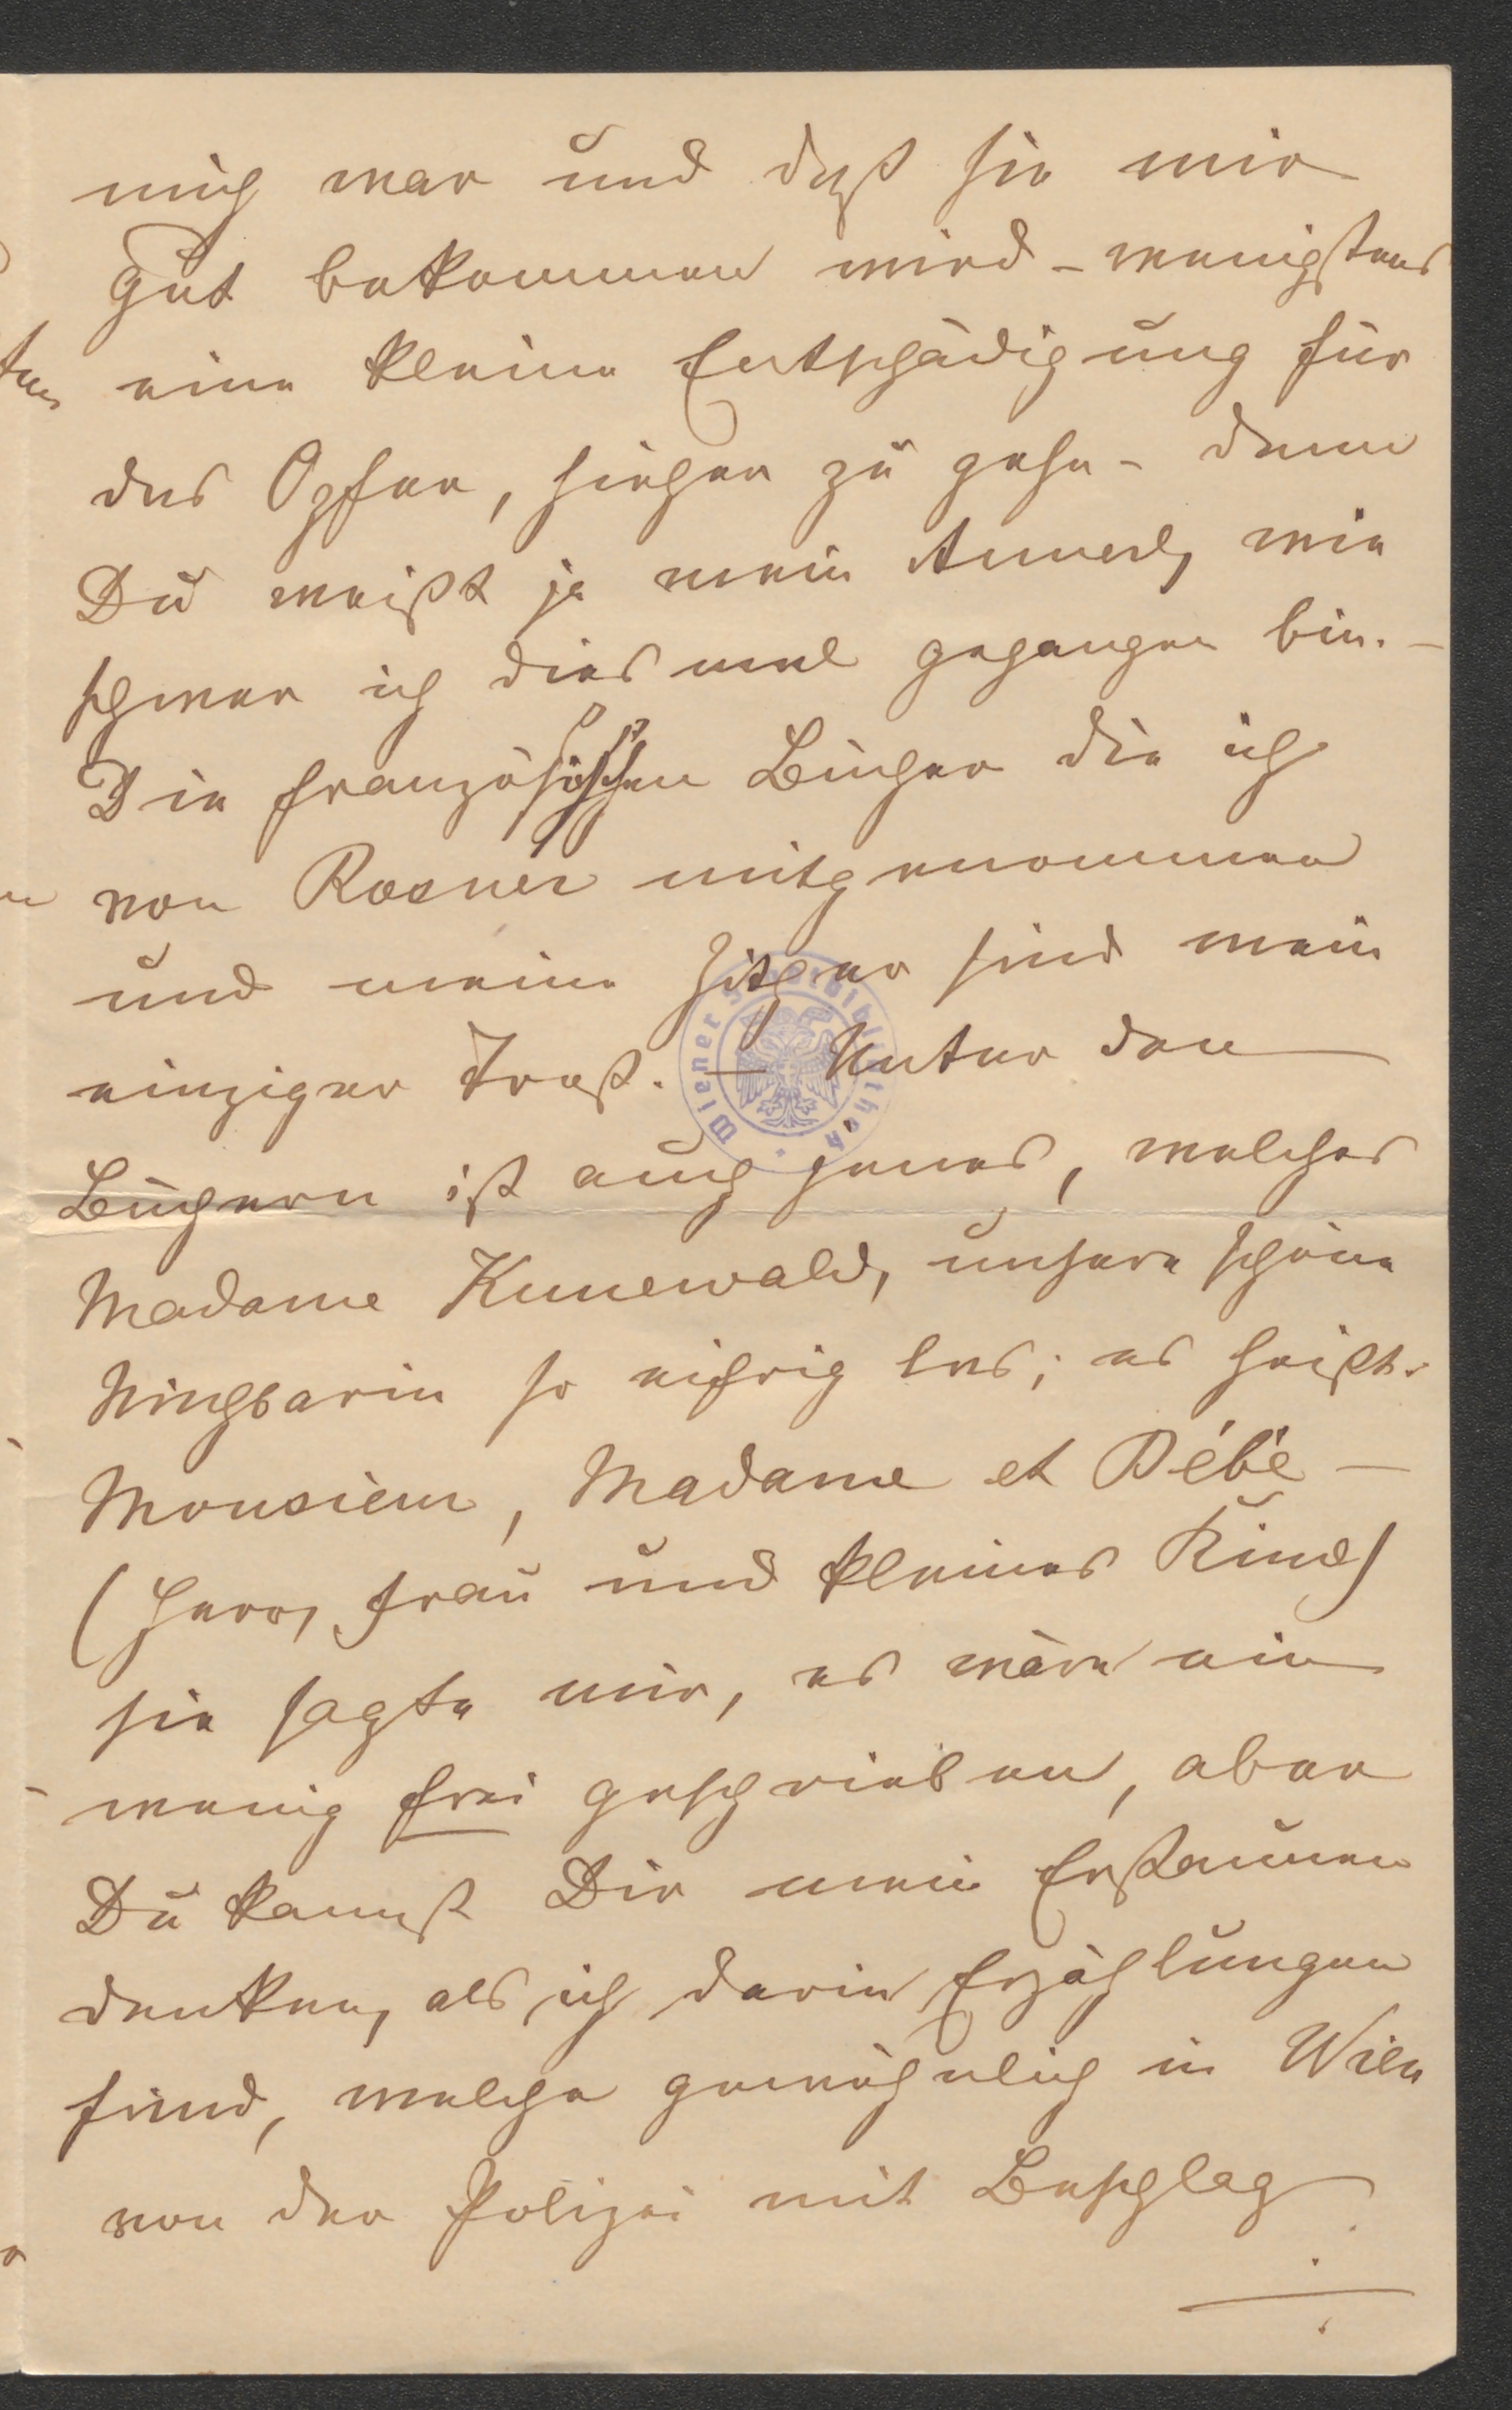 mich war und daß sie mir
gut bekommen wird – wenigstens
eine kleine Entschädigung für
das Opfer, hieher zu gehn – denn
Du weißt ja mein Annerl, wie
schwer ich dies mal gegangen bin. –
Die französischen Bücher die ich
von Rosner mitgenommen
und meine Zither sind mein
einziger Trost. – Unter den
Büchern ist auch jenes, welches
Madame Kunewald, unsere schöne
Nachbarin so eifrig las; es heißt:
Monsieur, Madame et Bébé –
(Herr, Frau und kleines Kind)
sie sagte mir, es wäre ein
wenig frei geschrieben, aber
Du kannst Dir mein Erstaunen
denken, als ich darin Erzählungen
fand, welche gewöhnlich in Wien
von der Polizei mit Beschlag
Wiener Stadtbibliothek